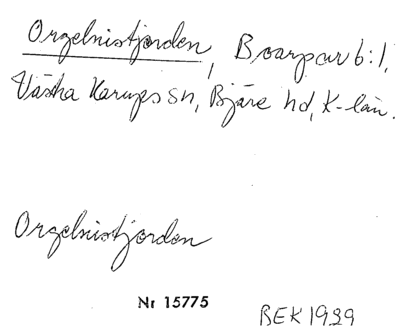 Orgelnistjorden, Boarpar 6:1,
Västra Karups sn, Bjäre hd, K-län.
Orgelnistjorden
Nr 15775
BEK 1939